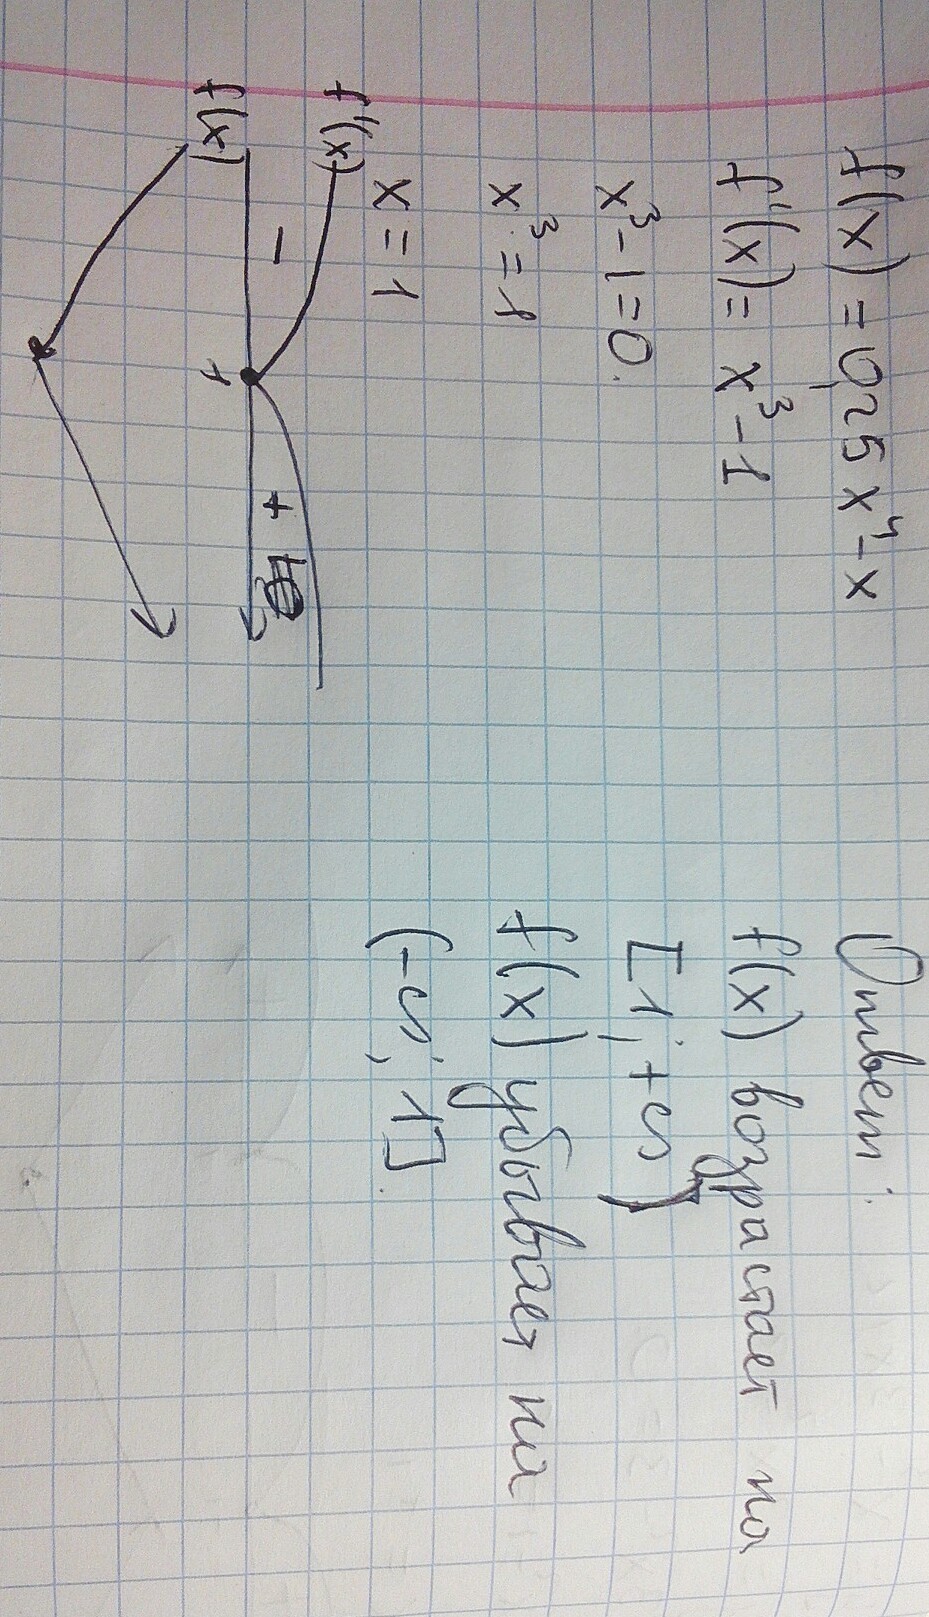 f(x) = 0,25x⁴-x
f'(x) = x³-1
x³-1=0.
x³=1
x=1
f'(x)
- +
1
f(x)
Ответ:
f(x) возрастает на
[1; +∞)
f(x) убывает на
(-∞; 1].